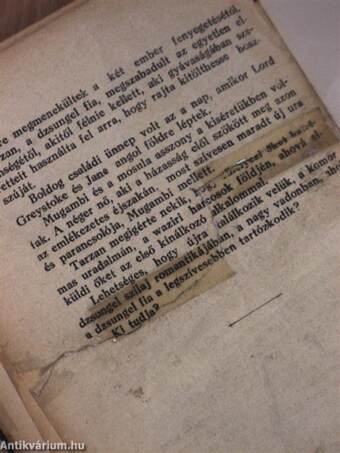 re megmenekültek a két ember fenyegetésétől.
zan, a dzsungel fia, megszabadult az egyetlen el-
nségétől, akitől félnie kellett, aki gyávaságában szö-
vetteit használta fel arra, hogy rajta kitölthesse bosz-
szúját.
Boldog családi ünnep volt az a nap, amikor Lord
Greystoke és Jane angol földre léptek.
Mugambi és a mosula asszony a kíséretükben vol-
tak. A néger nő, aki a házasság elől szökött meg azon
az emlékezetes éjszakán, most szívesen maradt új ura
és parancsolója, Mugambi mellett.
Tarzan megígérte nekik,
mas uradalmán, a waziri harcosok földjén, ahová el-
küldi őket az első kínálkozó alkalommal.
Lehetséges, hogy újra találkozik velük, a komor
dzsungel szilaj romantikájában, a nagy vadonban, ahol
a dzsungel fia a legszívesebben tartózkodik?
Ki tudja?
Antikvárium.hu